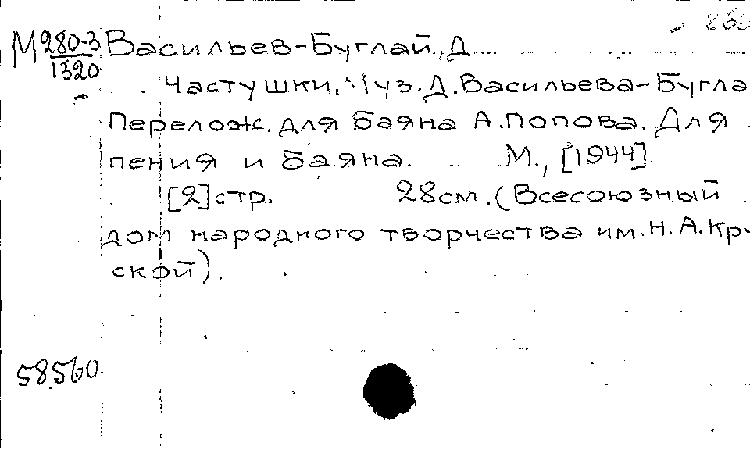 М 280-3 Васильев-Буглай, Д.
1320
Частушки. Муз. Д. Васильева-Бугла
Перелож. для баяна А. Попова. Для
пения и баяна. М., [1944]
[2] стр. 28 см. (Всесоюзный
дом народного творчества им. Н. А. Кру
ской).
58.560